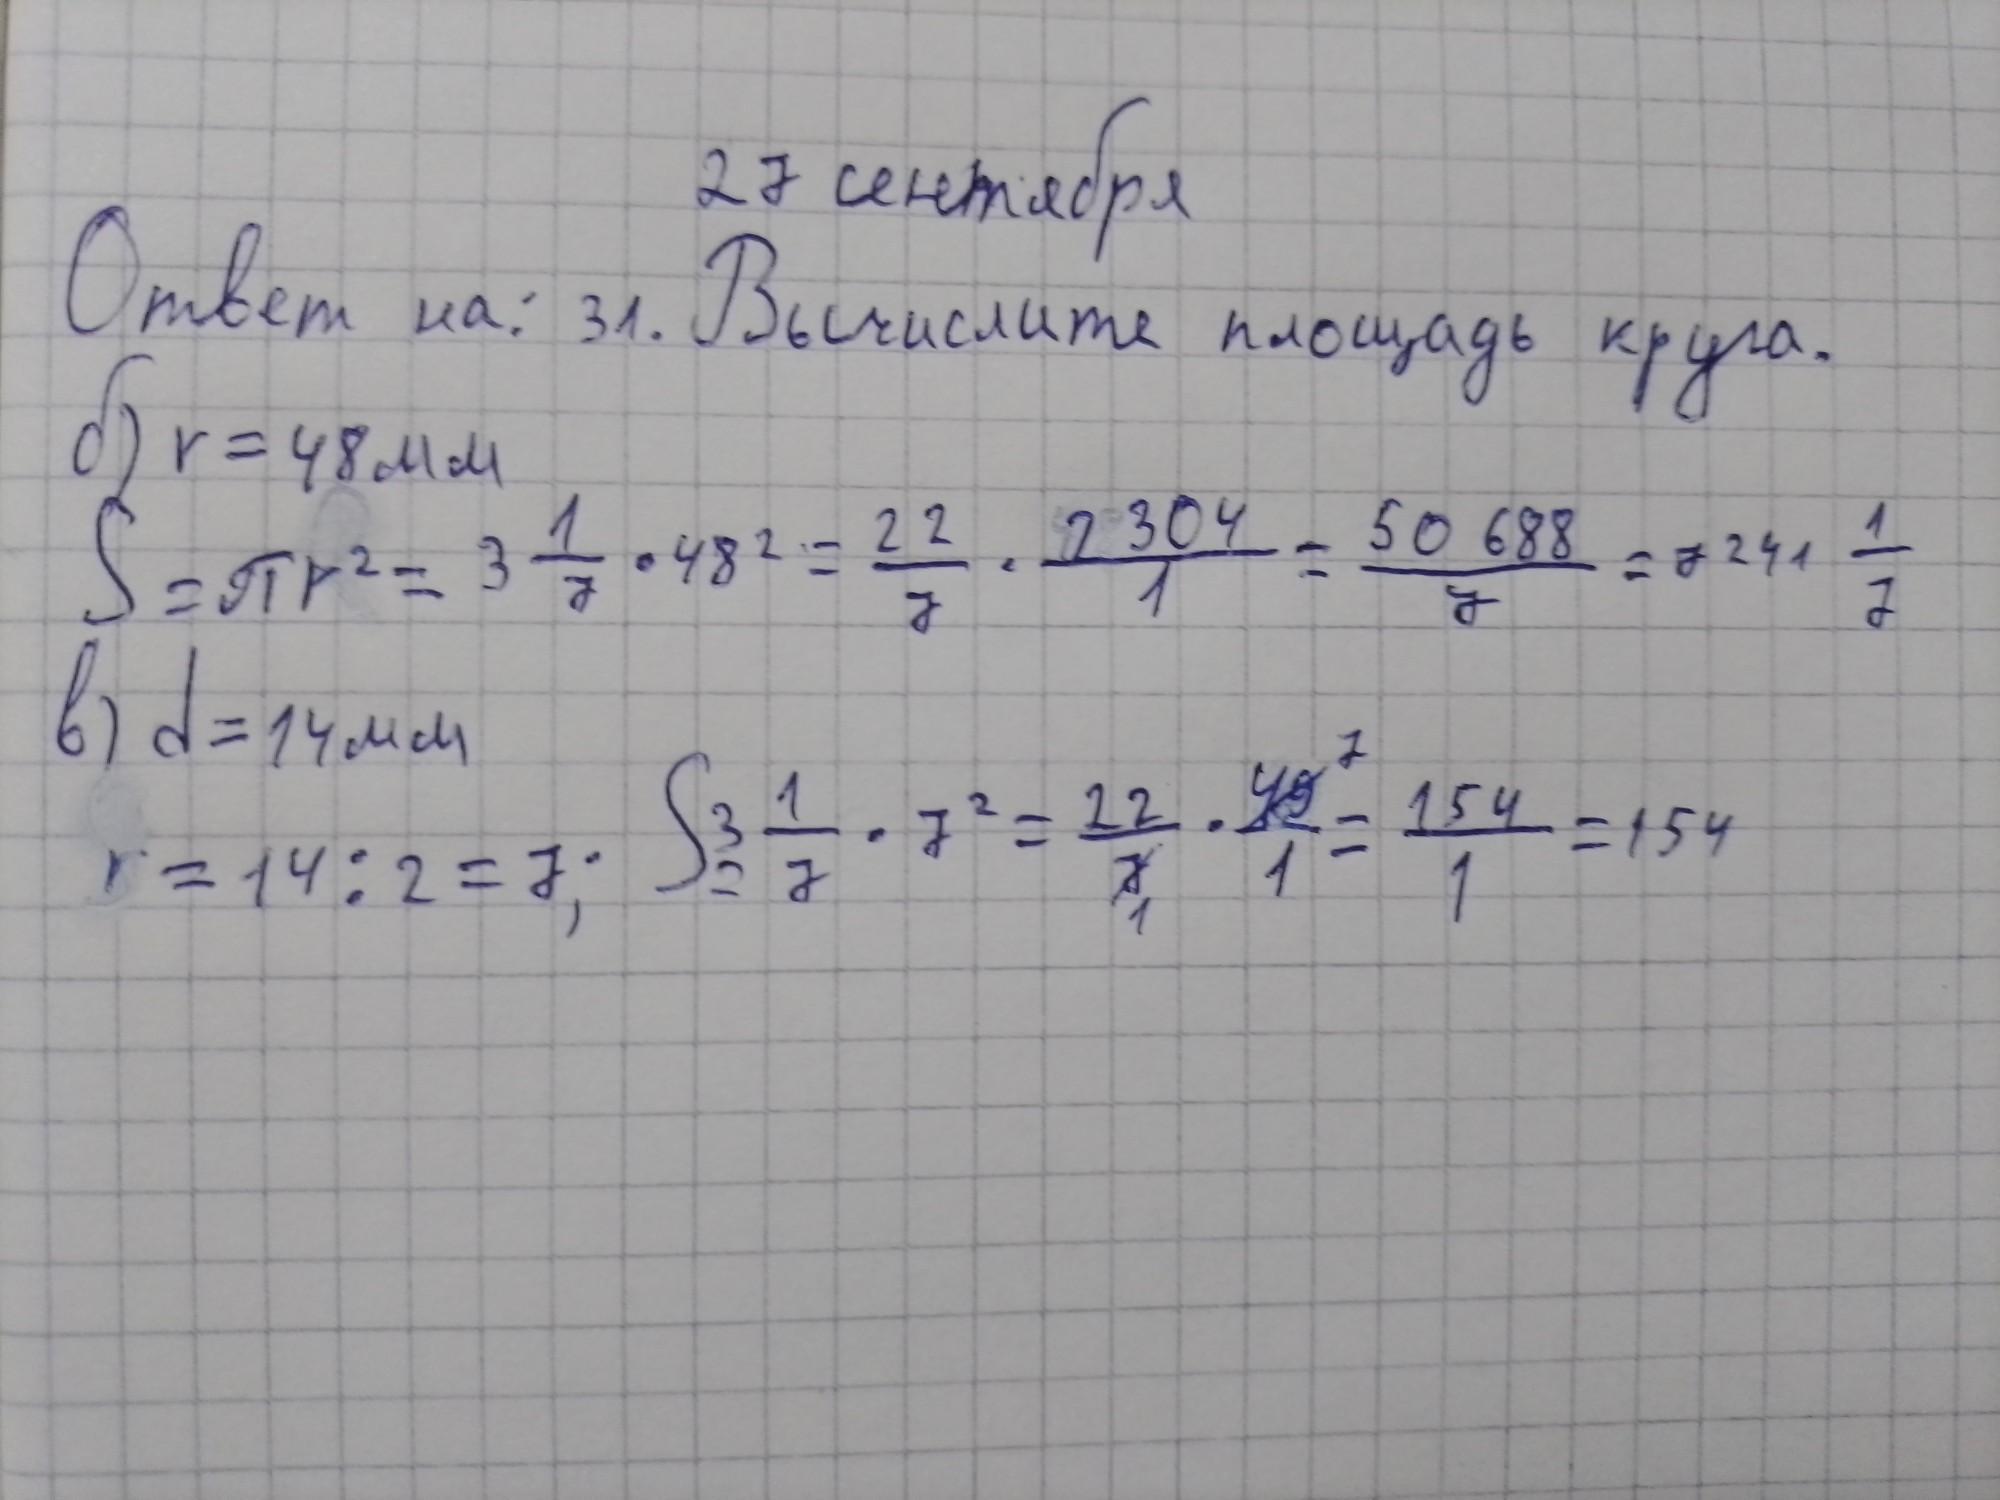 27 сентября
Ответ на: 31. Вычислите площадь круга.
б) r = 48мм
S = πr² = 3 1/7 · 48² = 22/7 · 2 304/1 = 50 688/7 = 7 241 1/7
в) d = 14мм
r = 14 : 2 = 7; S = 3 1/7 · 7² = 22/7 1 · 49 7/1 = 154/1 = 154